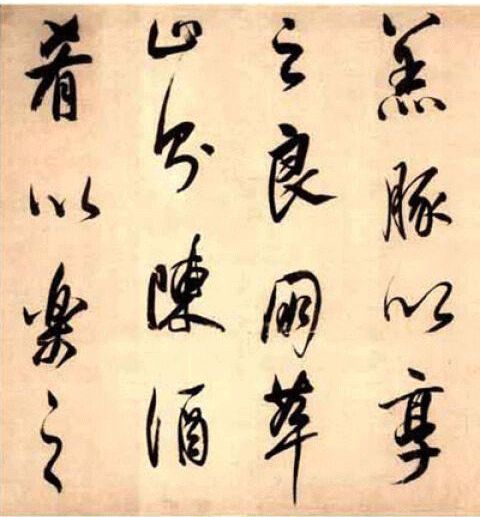 羔豚以享
之良朋萃
止則陳酒
肴以樂之